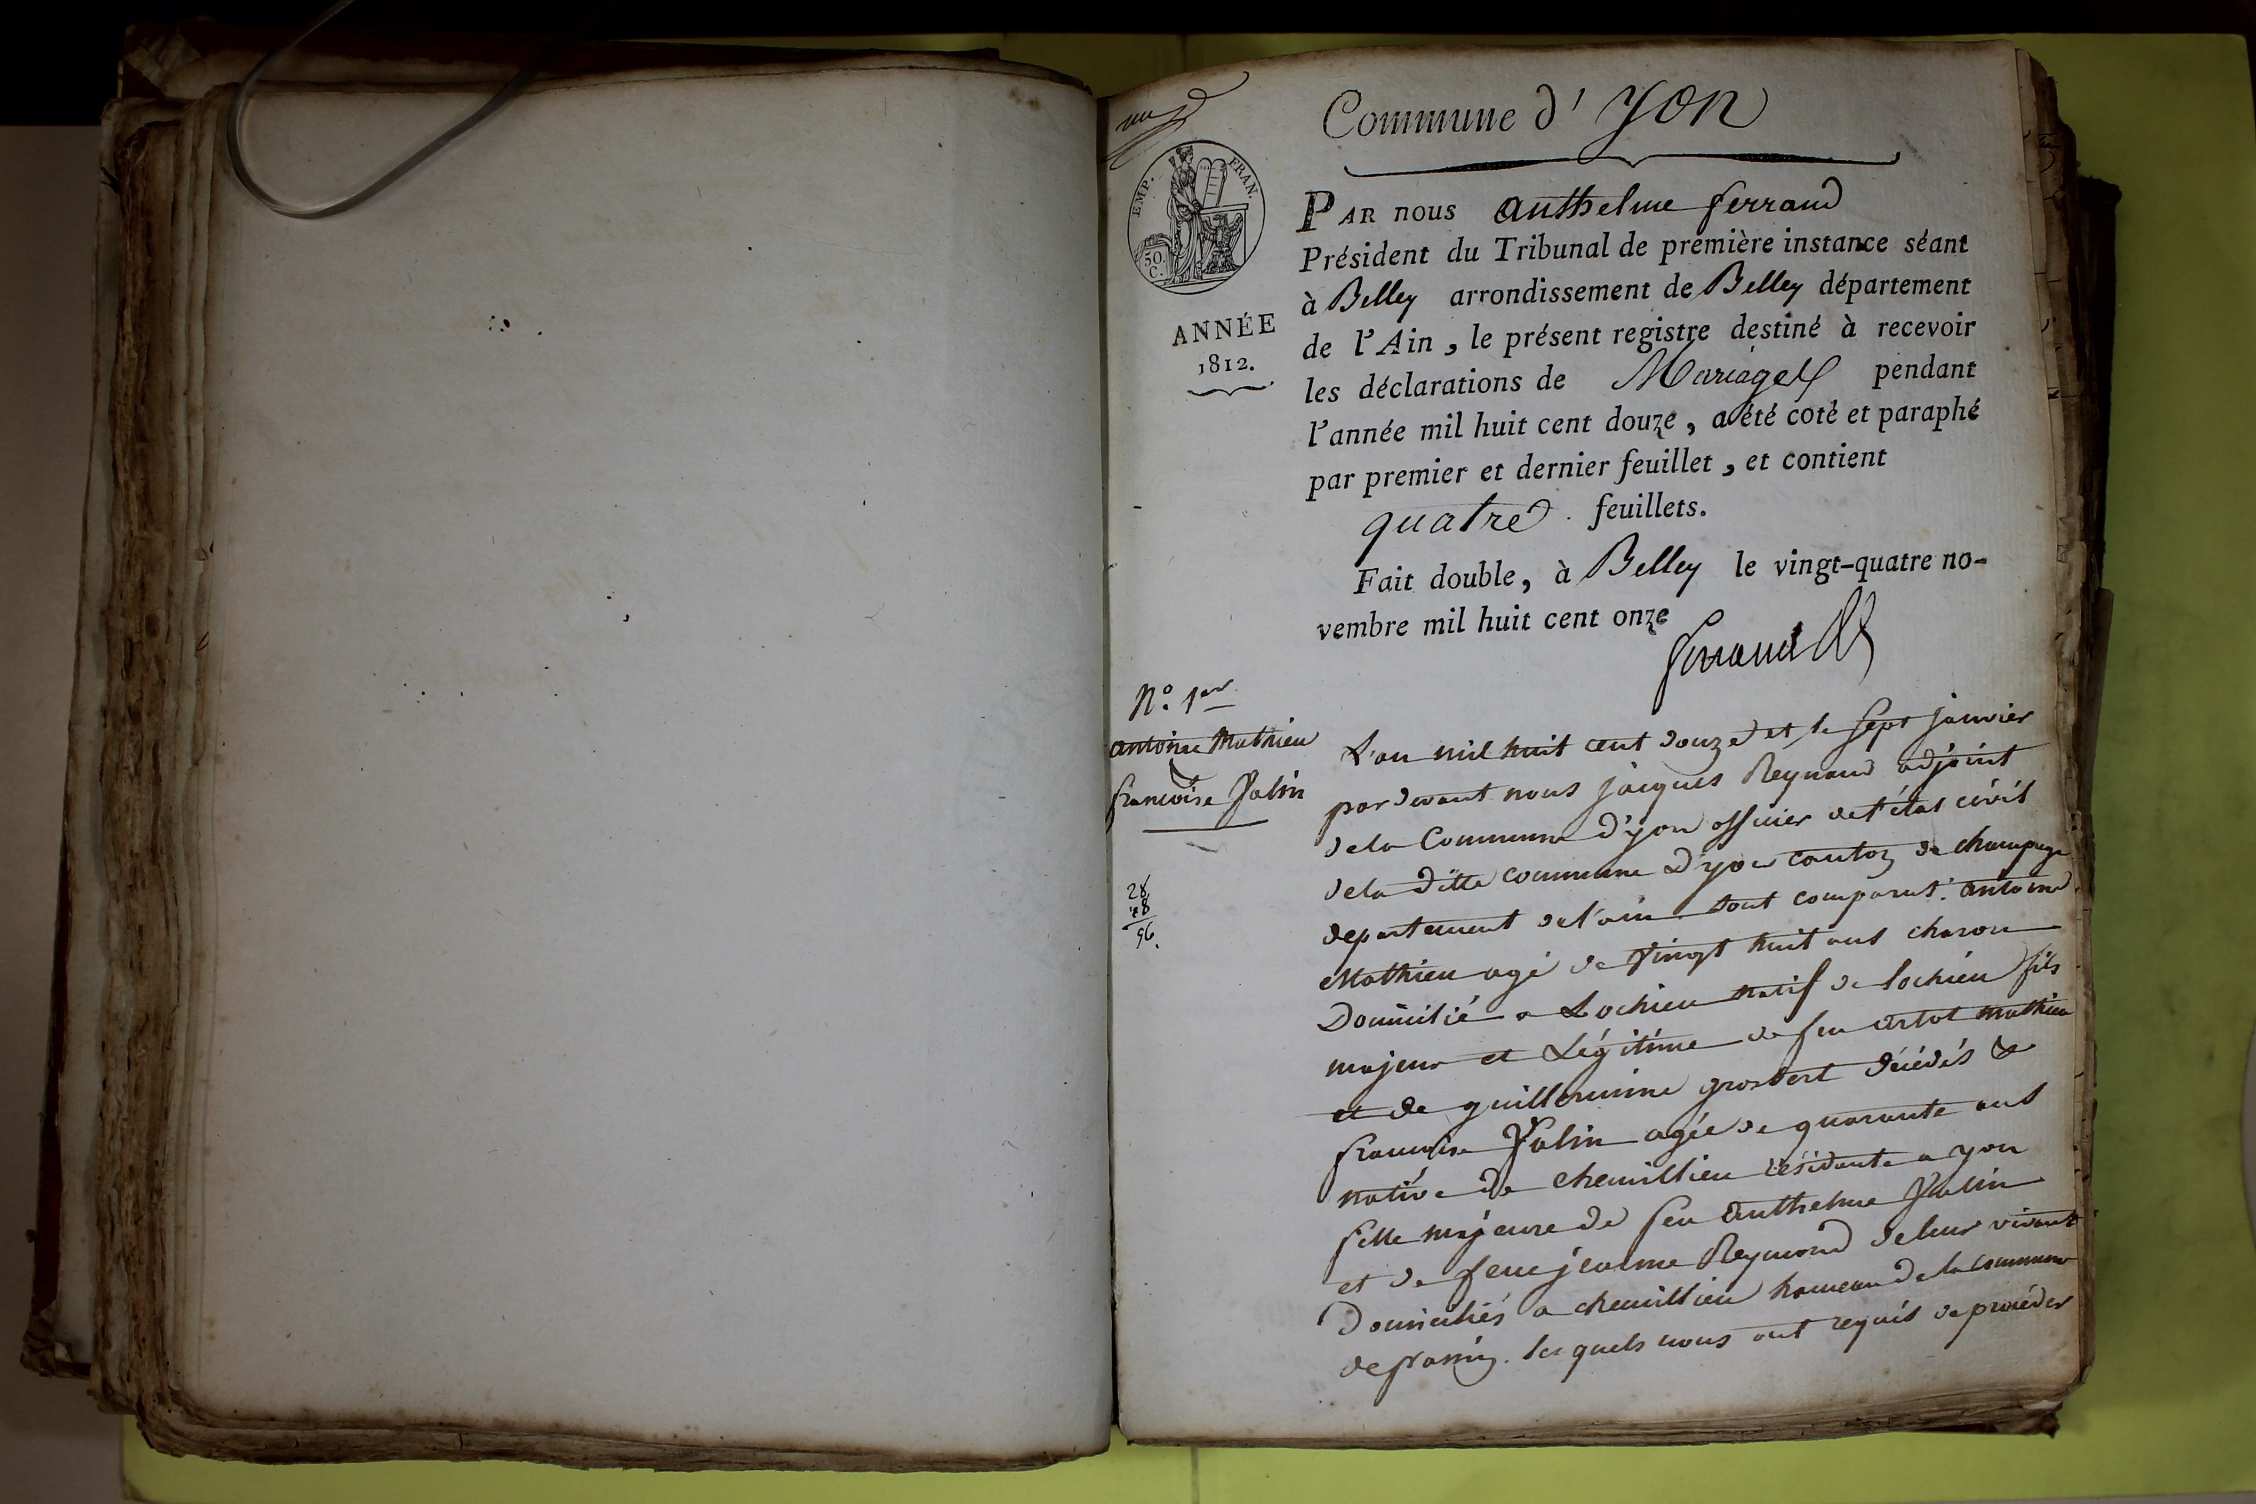 un
Commune d'Yon
EMP. FRAN.
50.
C.
ANNÉE
1812.
PAR nous Anthelme ferrand
Président du Tribunal de première instance séant
à Belley arrondissement de Belley département
de l'Ain, le présent registre destiné à recevoir
les déclarations de Mariages pendant
l'année mil huit cent douze, a été coté et paraphé
par premier et dernier feuillet, et contient
quatre feuillets.
Fait double, à Belley le vingt-quatre no-
vembre mil huit cent onze
ferrand
N.º 1er
antoine Mathieu
francoise Jalin
28
96.
L'an mil huit cent douze et le sept janvier
pardevant nous jacques Reynaud adjoint
dela Commune d'yon officier de l'état civil
dela ditte commune d'yon canton de champagne
departement de l'ain sont comparut. antoine
Mathieu agé de vingt huit ans charon
Domicilié a Lochieu natif de lochieu fils
majeur et Légitime de feu mathieu
et de guillermine grosbert décédés &
francoise Jalin agée de quarante ans
native de chemillieu résidante a yon
fille majeure de feu anthelme Jalin
et de feue jeanne Reymond de leur vivant
Domiciliés a chemillieu hameau de la commune
de. lesquels nous ont requis de procéder